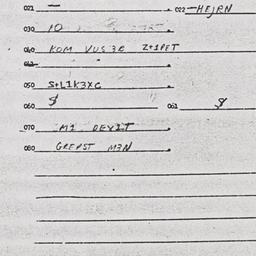 021 — 022 — HEJRN
030 10
040 KOM VUS3R Z+1PET
042
050 S+L1K3XC
060 $ 061 $
070 M1 DEVIT
080 GREPST M3N